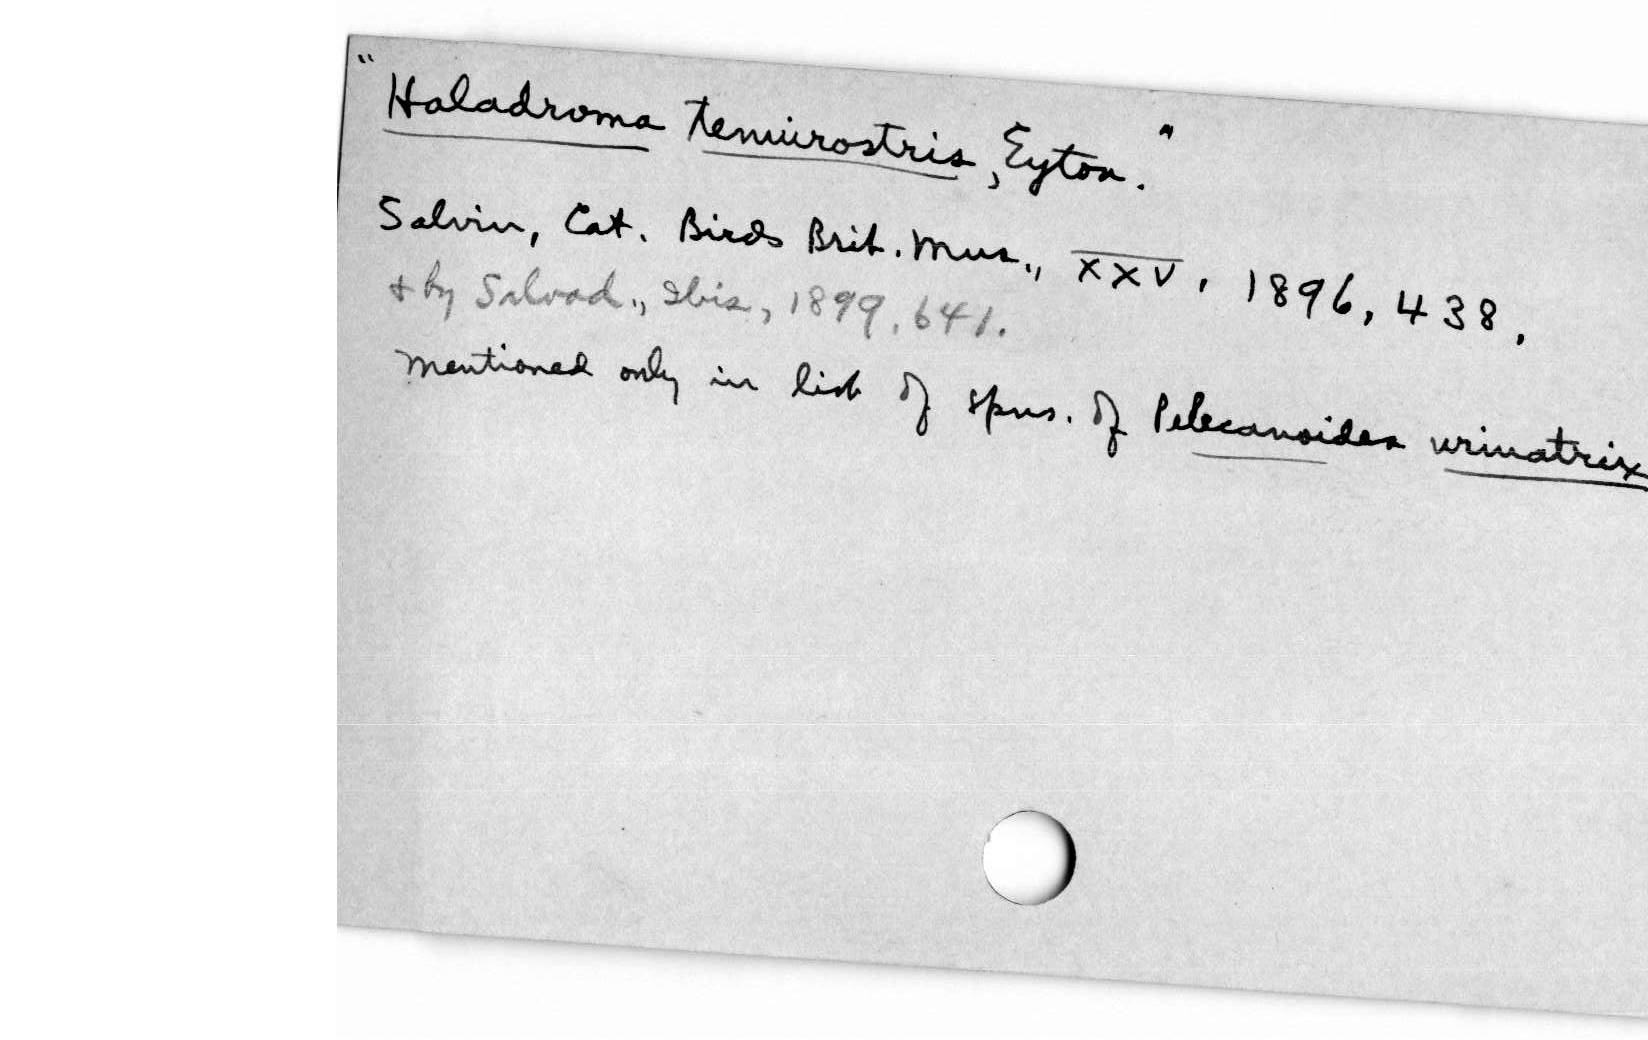 "Haladroma tenuirostris, Eyton."
Salvin, Cat. Birds Brit. Mus., XXV, 1896, 438.
& by Salvad., Ibis, 1899, 641.
Mentioned only in list of spms. of Pelecanoides urinatrix